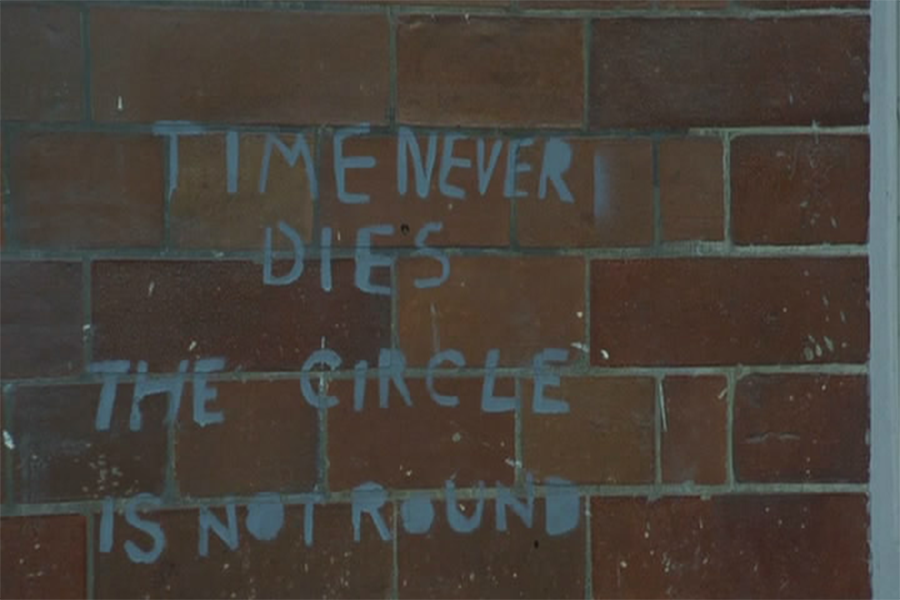 TIME NEVER
DIES
THE CIRCLE
IS NOT ROUND